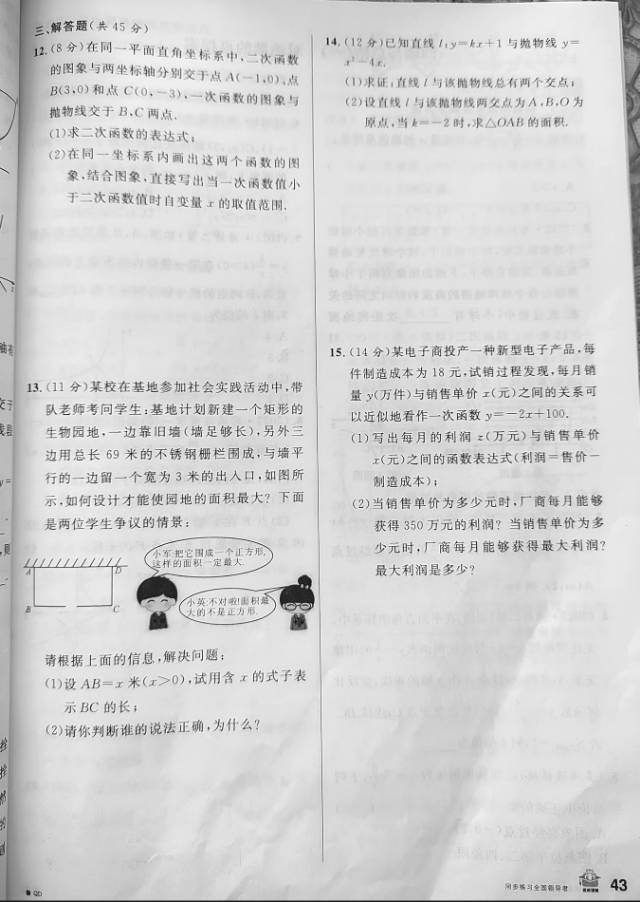 三、解答题(共 45 分)
12.(8 分)在同一平面直角坐标系中,二次函数
的图象与两坐标轴分别交于点 A(-1,0)、点
B(3,0)和点 C(0,-3),一次函数的图象与
抛物线交于 B、C 两点.
(1)求二次函数的表达式;
(2)在同一坐标系内画出这两个函数的图
象,结合图象,直接写出当一次函数值小
于二次函数值时自变量 x 的取值范围.
13.(11 分)某校在基地参加社会实践活动中,带
队老师考问学生:基地计划新建一个矩形的
生物园地,一边靠旧墙(墙足够长),另外三
边用总长 69 米的不锈钢栅栏围成,与墙平
行的一边留一个宽为 3 米的出入口,如图所
示,如何设计才能使园地的面积最大?下面
是两位学生争议的情景:
A
D
B
C
小军:把它围成一个正方形,
这样的面积一定最大.
小英:不对啦!面积最
大的不是正方形.
请根据上面的信息,解决问题:
(1)设 AB=x 米(x>0),试用含 x 的式子表
示 BC 的长;
(2)请你判断谁的说法正确,为什么?
14.(12 分)已知直线 l:y=kx+1 与抛物线 y=
x²-4x.
(1)求证:直线 l 与该抛物线总有两个交点;
(2)设直线 l 与该抛物线两交点为 A,B,O 为
原点,当 k=-2 时,求△OAB 的面积.
15.(14 分)某电子商投产一种新型电子产品,每
件制造成本为 18 元,试销过程发现,每月销
量 y(万件)与销售单价 x(元)之间的关系可
以近似地看作一次函数 y=-2x+100.
(1)写出每月的利润 z(万元)与销售单价
x(元)之间的函数表达式(利润=售价-
制造成本);
(2)当销售单价为多少元时,厂商每月能够
获得 350 万元的利润?当销售单价为多
少元时,厂商每月能够获得最大利润?
最大利润是多少?
QD
同步练习全面领导者
43